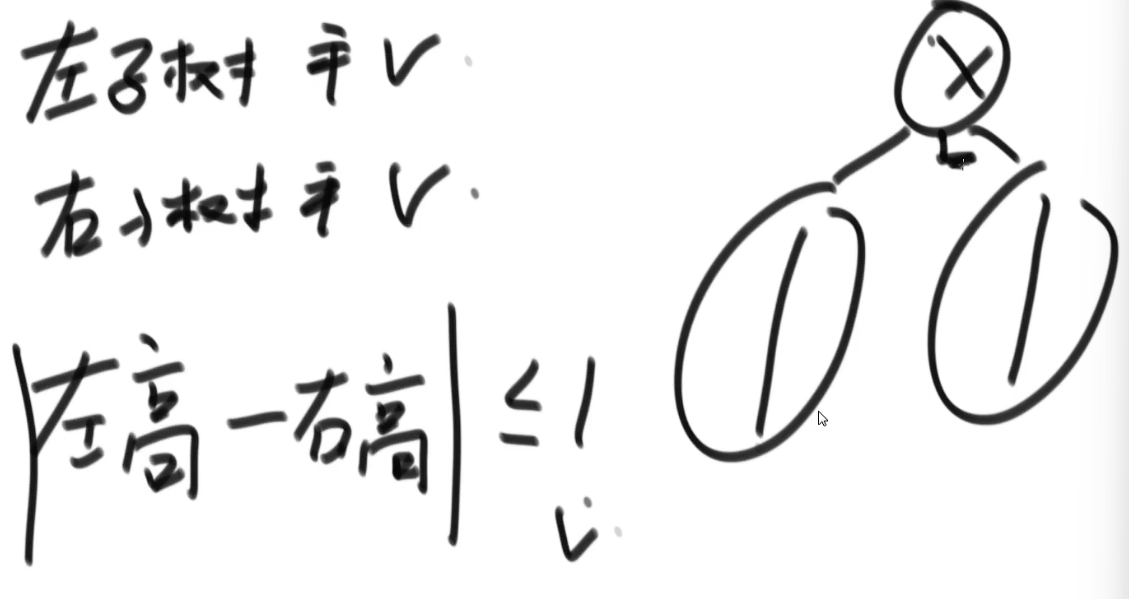 左子树平√
右子树平√
|左高-右高|≤1
√
X